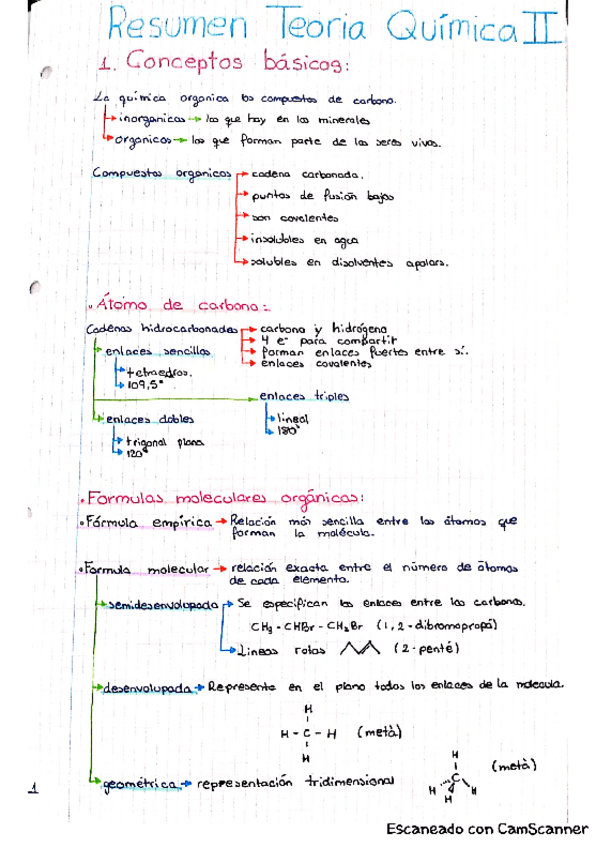 Resumen Teoria Química II
1. Conceptos básicos:
La química organica los compuestos de carbono.
inorganicos → los que hay en los minerales
organicos → los que forman parte de los seres vivos.
Compuestos organicos → cadena carbonada.
puntos de fusión bajos
son covalentes
insolubles en agua
solubles en disolventes apolars.
. Átomo de carbono:
Cadenas hidrocarbonadas → carbono y hidrógeno
4 e⁻ para compartir
enlaces sencillos
forman enlaces fuertes entre sí.
enlaces covalentes
tetraedros.
109,5°
enlaces triples
enlaces dobles
lineal
180°
trigonal plana
120°
. Formulas moleculares orgánicas:
• Fórmula empírica → Relación más sencilla entre los átomos que
forman la molécula.
• Formula molecular → relación exacta entre el número de átomos
de cada elemento.
semidesenvolupada → Se especifican los enlaces entre los carbonos.
CH₃ - CHBr - CH₂Br (1,2-dibromopropà)
Lineas rotas (2-penté)
desenvolupada → Represente en el plano todos los enlaces de la molecula.
H
H - C - H (metà)
H
H
(metà)
C
geométrica → representación tridimensional
H H
H
1
Escaneado con CamScanner